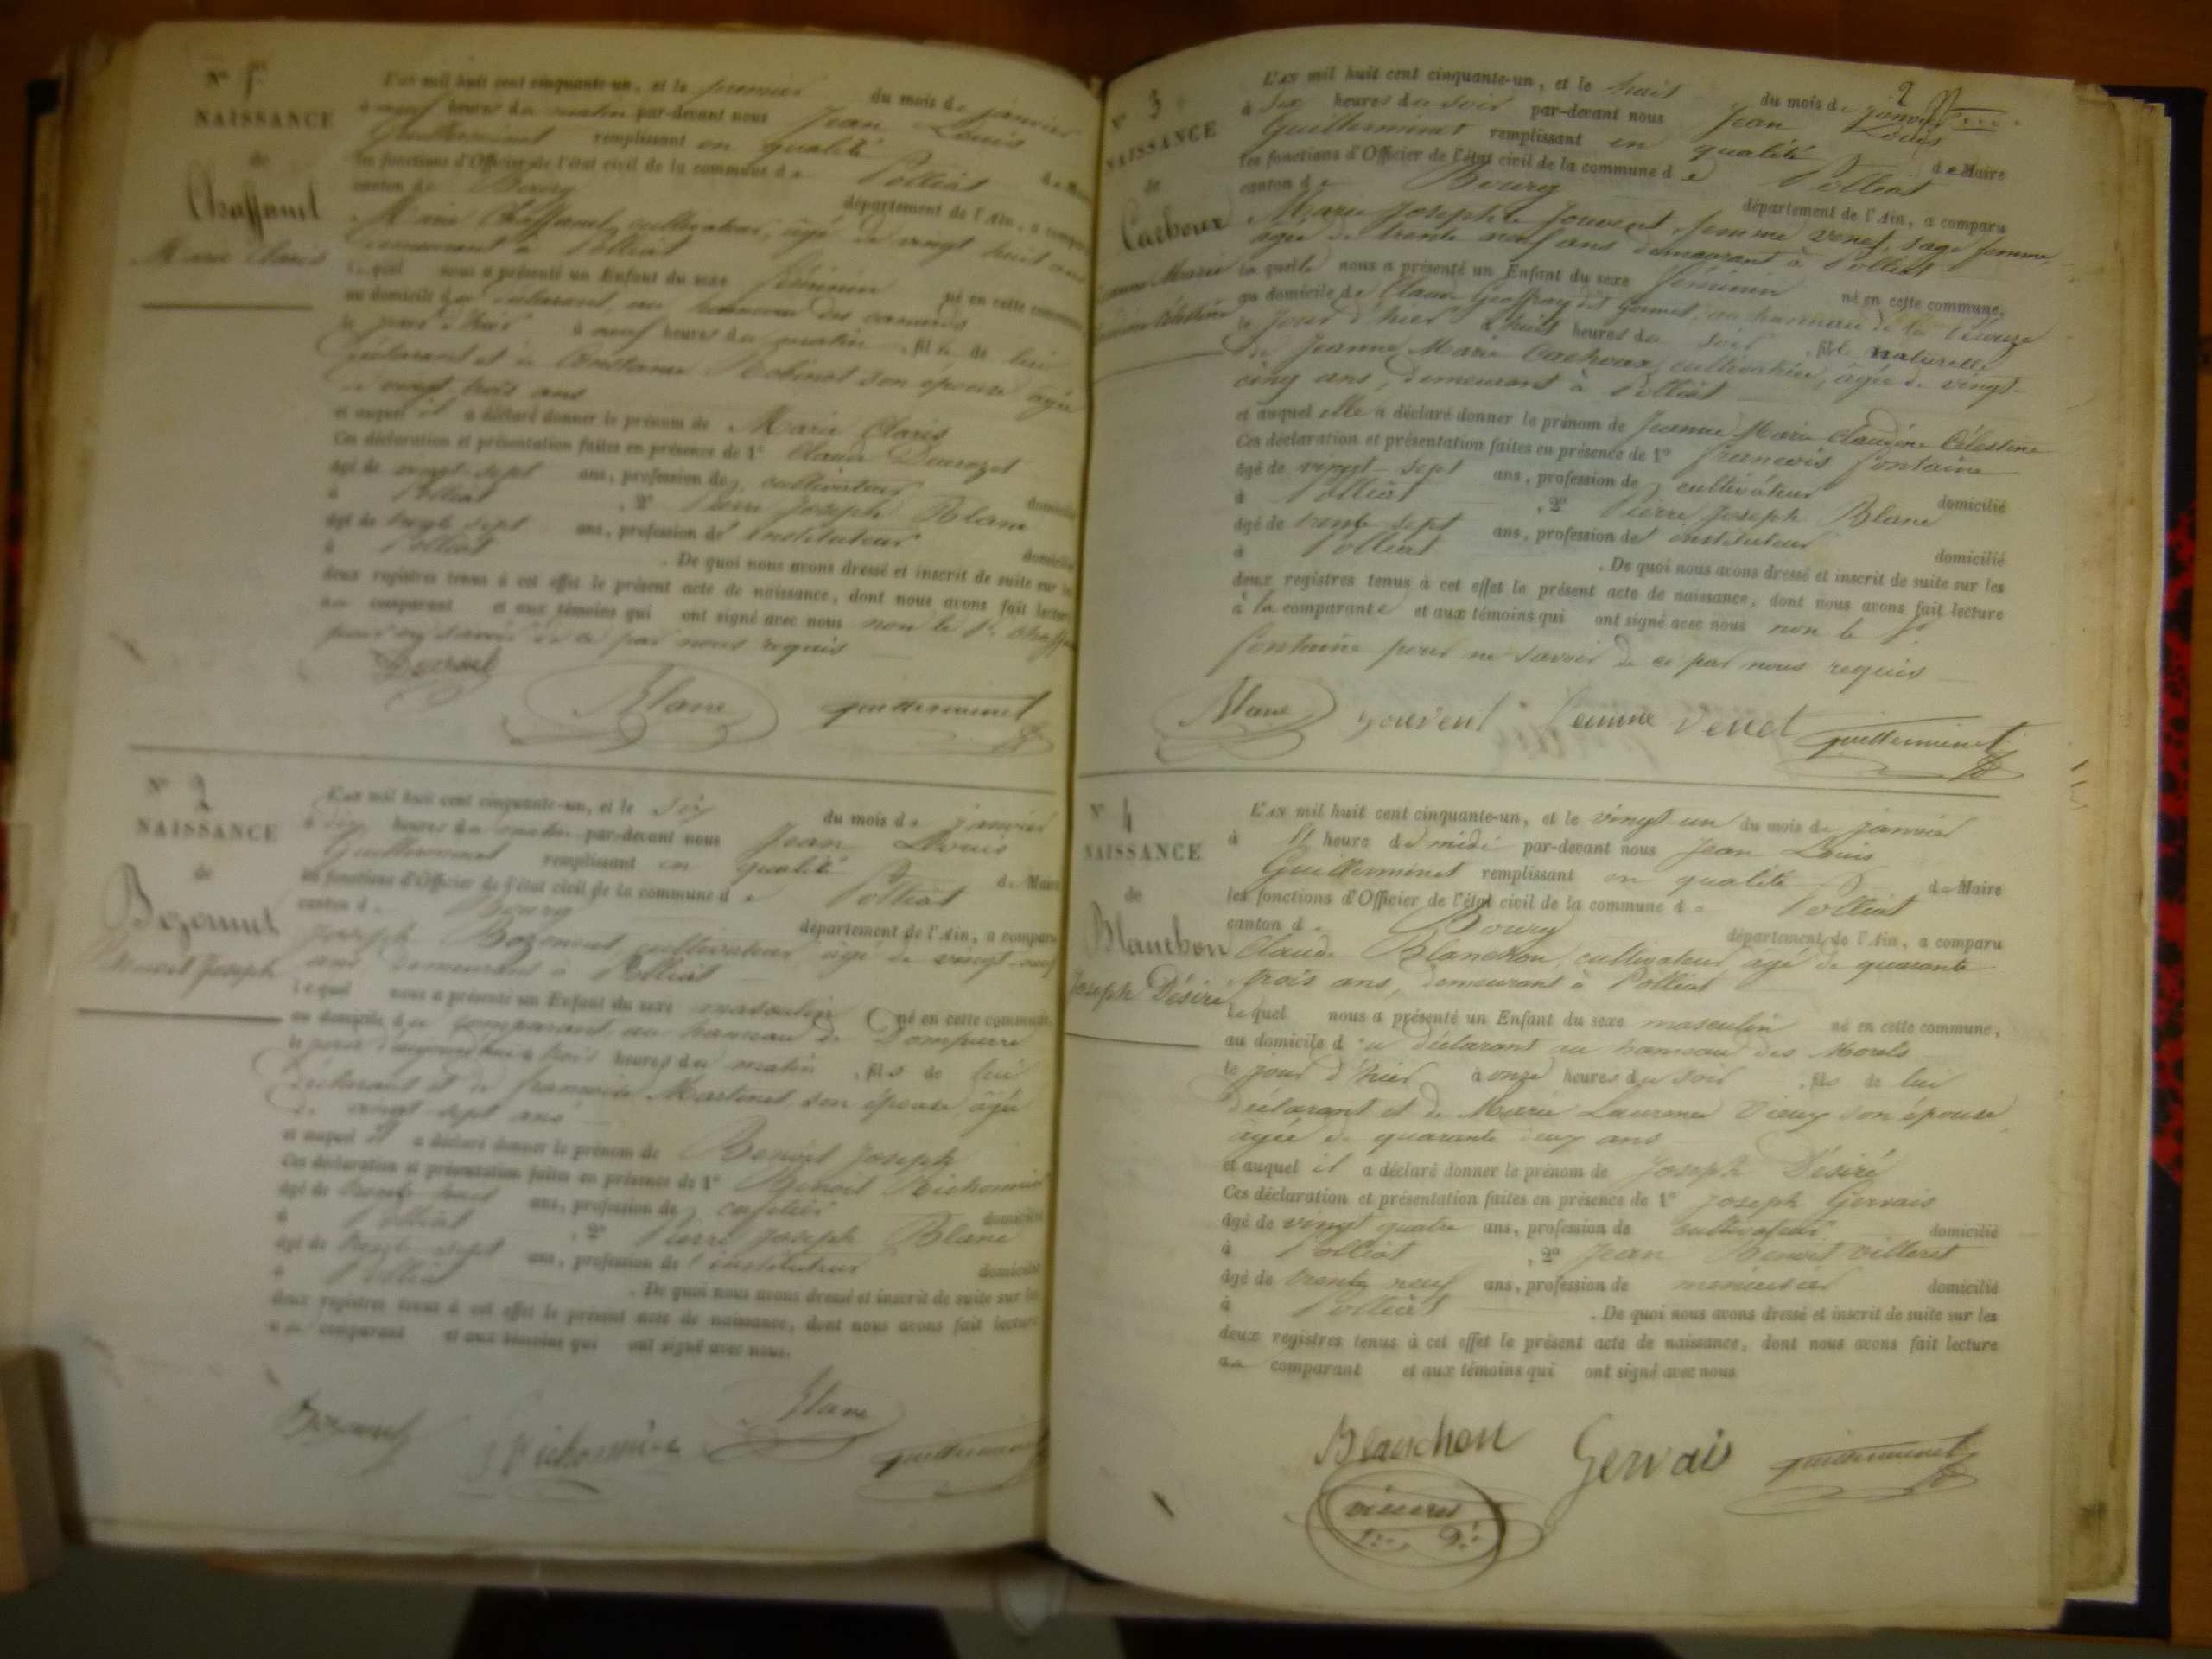 N° 1
NAISSANCE
de
Chaffanel
Marie Claris
L'AN mil huit cent cinquante-un, et le premier du mois de janvier
à neuf heures du matin par-devant nous Jean Louis
Guillerminet remplissant en qualité de Maire
les fonctions d'Officier de l'état civil de la commune de Polliat
canton de Bourg département de l'Ain, a comparu
Marie Chaffanel, cultivateur, âgé de vingt huit ans
demeurant à Polliat
Lequel nous a présenté un Enfant du sexe féminin né en cette commune
au domicile du déclarant, au hameau des
le jour d'hier à neuf heures du matin, fille de lui
déclarant et de Constance Robinet son épouse âgée
de vingt trois ans
et auquel il a déclaré donner le prénom de Marie Claris
Ces déclaration et présentation faites en présence de 1° Claude
âgé de vingt-sept ans, profession de cultivateur domicilié
à Polliat, 2° Pierre Joseph Blanc
âgé de trente sept ans, profession d'instituteur domicilié
à Polliat. De quoi nous avons dressé et inscrit de suite sur les
deux registres tenus à cet effet le présent acte de naissance, dont nous avons fait lecture
au comparant et aux témoins qui ont signé avec nous non le
pour ne savoir de ce par nous requis
Blanc guillerminet
N° 2
NAISSANCE
de
Bozonnet
Benoit Joseph
L'AN mil huit cent cinquante-un, et le six du mois de janvier
à dix heures du matin par-devant nous Jean Louis
Guillerminet remplissant en qualité de Maire
les fonctions d'Officier de l'état civil de la commune de Polliat
canton de Bourg département de l'Ain, a comparu
Joseph Bozonnet, cultivateur âgé de vingt-neuf
ans demeurant à Polliat
Lequel nous a présenté un Enfant du sexe masculin né en cette commune,
au domicile du comparant au hameau de Dompierre
le jour d'aujourd'hui à trois heures du matin, fils de lui
déclarant et de francoise Martinet, son épouse, âgée
de vingt-sept ans
et auquel il a déclaré donner le prénom de Benoit Joseph
Ces déclaration et présentation faites en présence de 1° Benoit Richonnier
âgé de ans, profession de domicilié
à Polliat, 2° Pierre Joseph Blanc
âgé de trente sept ans, profession d'instituteur domicilié
à Polliat. De quoi nous avons dressé et inscrit de suite sur les
deux registres tenus à cet effet le présent acte de naissance, dont nous avons fait lecture
au comparant et aux témoins qui ont signé avec nous.
Bozonnet Richonnier Blanc guillerminet
2
N° 3
NAISSANCE
de
Cachoux
Jeanne Marie
Claudine Célestine
L'AN mil huit cent cinquante-un, et le huit du mois de janvier
à six heures du soir par-devant nous Jean Louis
Guillerminet remplissant en qualité de Maire
les fonctions d'Officier de l'état civil de la commune de Polliat
canton de Bourg département de l'Ain, a comparu
Marie Josephte Jouvent, femme Venet, sage femme,
âgée de trente neuf ans demeurant à Polliat
Laquelle nous a présenté un Enfant du sexe féminin né en cette commune,
au domicile de Claude Geoffray dit Goumet, au hameau de la
le jour d'hier à huit heures du soir, fille naturelle
de Jeanne Marie Cachoux, cultivatrice, âgée de vingt-
cinq ans, demeurant à Polliat
et auquel elle a déclaré donner le prénom de Jeanne Marie Claudine Célestine
Ces déclaration et présentation faites en présence de 1° francois fontaine
âgé de vingt-sept ans, profession de cultivateur domicilié
à Polliat, 2° Pierre Joseph Blanc
âgé de trente sept ans, profession d'instituteur domicilié
à Polliat. De quoi nous avons dressé et inscrit de suite sur les
deux registres tenus à cet effet le présent acte de naissance, dont nous avons fait lecture
à la comparante et aux témoins qui ont signé avec nous non le
fontaine pour ne savoir de ce par nous requis
Blanc jouvent femme venet guillerminet
N° 4
NAISSANCE
de
Blanchon
Joseph Désiré
L'AN mil huit cent cinquante-un, et le vingt-un du mois de janvier
à heure de midi par-devant nous Jean Louis
Guillerminet remplissant en qualité de Maire
les fonctions d'Officier de l'état civil de la commune de Polliat
canton de Bourg département de l'Ain, a comparu
Claude Blanchon, cultivateur âgé de quarante
trois ans, demeurant à Polliat
Lequel nous a présenté un Enfant du sexe masculin né en cette commune,
au domicile du déclarant au hameau des Morels
le jour d'hier à onze heures du soir, fils de lui
déclarant et de Marie Laurence Vieux son épouse,
âgée de quarante deux ans
et auquel il a déclaré donner le prénom de Joseph Désiré
Ces déclaration et présentation faites en présence de 1° Joseph Gervais
âgé de vingt quatre ans, profession de cultivateur domicilié
à Polliat, 2° Jean Benoit Villeret
âgé de trente neuf ans, profession de menuisier domicilié
à Polliat. De quoi nous avons dressé et inscrit de suite sur les
deux registres tenus à cet effet le présent acte de naissance, dont nous avons fait lecture
au comparant et aux témoins qui ont signé avec nous
Blanchon Gervais guillerminet